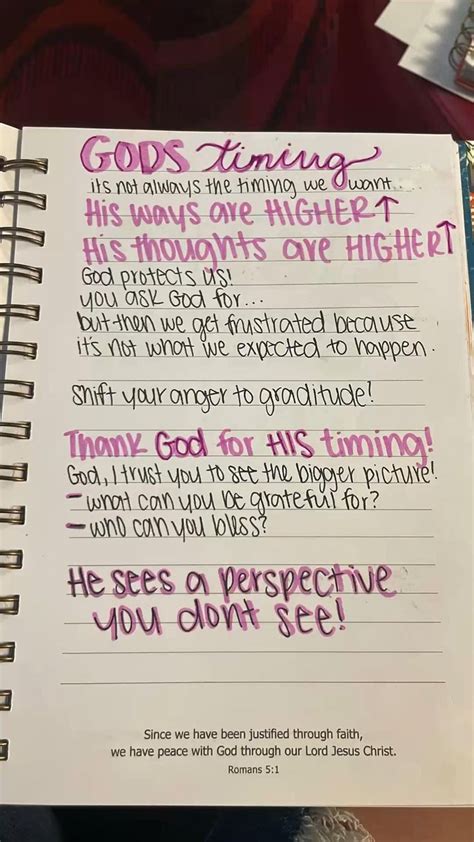 GODS timing
its not always the timing we want...
His ways are HIGHER↑
His thoughts are HIGHER↑
God protects us!
you ask God for...
but then we get frustrated because
it's not what we expected to happen.
Shift your anger to graditude!
Thank God for HIS timing!
God, I trust you to see the bigger picture!
- what can you be grateful for?
- who can you bless?
He sees a perspective
you dont see!
Since we have been justified through faith,
we have peace with God through our Lord Jesus Christ.
Romans 5:1